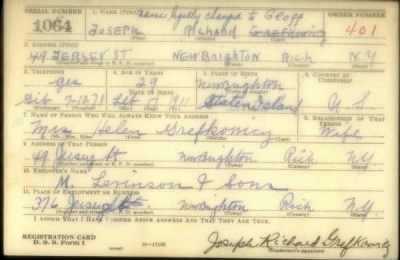 SERIAL NUMBER
1. NAME (Print)
name legally changed to Groff
ORDER NUMBER
1064
Joseph Richard Grefkowicz
401
2. ADDRESS (Print)
49 JERSEY ST NEW BRIGHTON Rich N.Y
3. TELEPHONE
4. AGE IN YEARS
5. PLACE OF BIRTH
6. COUNTRY OF CITIZENSHIP
yes 29 New Brighton
Gib. 7-1271 Feb 17 1911 Staten Island U S
7. NAME OF PERSON WHO WILL ALWAYS KNOW YOUR ADDRESS
8. RELATIONSHIP OF THAT PERSON
Mrs Helen Grefkowicz Wife
9. ADDRESS OF THAT PERSON
49 Jersey St New Brighton Rich NY
10. EMPLOYER'S NAME
M. Levinson & Sons
11. PLACE OF EMPLOYMENT OR BUSINESS
376 Jersey St New Brighton Rich NY
I AFFIRM THAT I HAVE VERIFIED ABOVE ANSWERS AND THAT THEY ARE TRUE.
REGISTRATION CARD
D. S. S. Form 1
Joseph Richard Grefkowicz